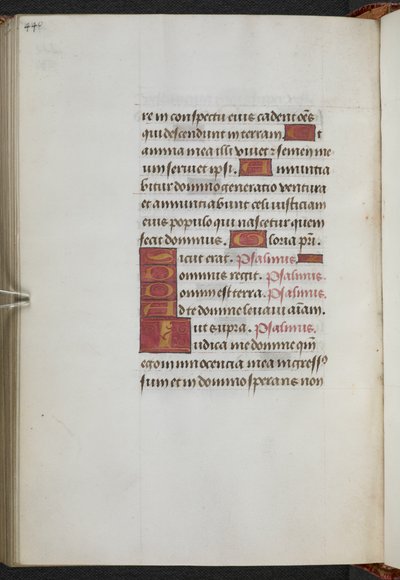 448
re in conspectu eius cadent oẽs
qui descendunt in terram. Et
anima mea illi vivet ⁊ semen me
um serviet ipsi. Annuntia
bitur domino generatio ventura
et annuntiabunt celi iusticiam
eius populo qui nascetur quem
fecit dominus. Gloria pr̃i.
Sicut erat. Psalmus.
Dominus regit. Psalmus.
Domini est terra. Psalmus.
Ad te domine levavi aĩam.
Ut supra. Psalmus.
Iudica me domine qm̃
ego in innocencia mea ingressꝰ
sum et in domino sperans non